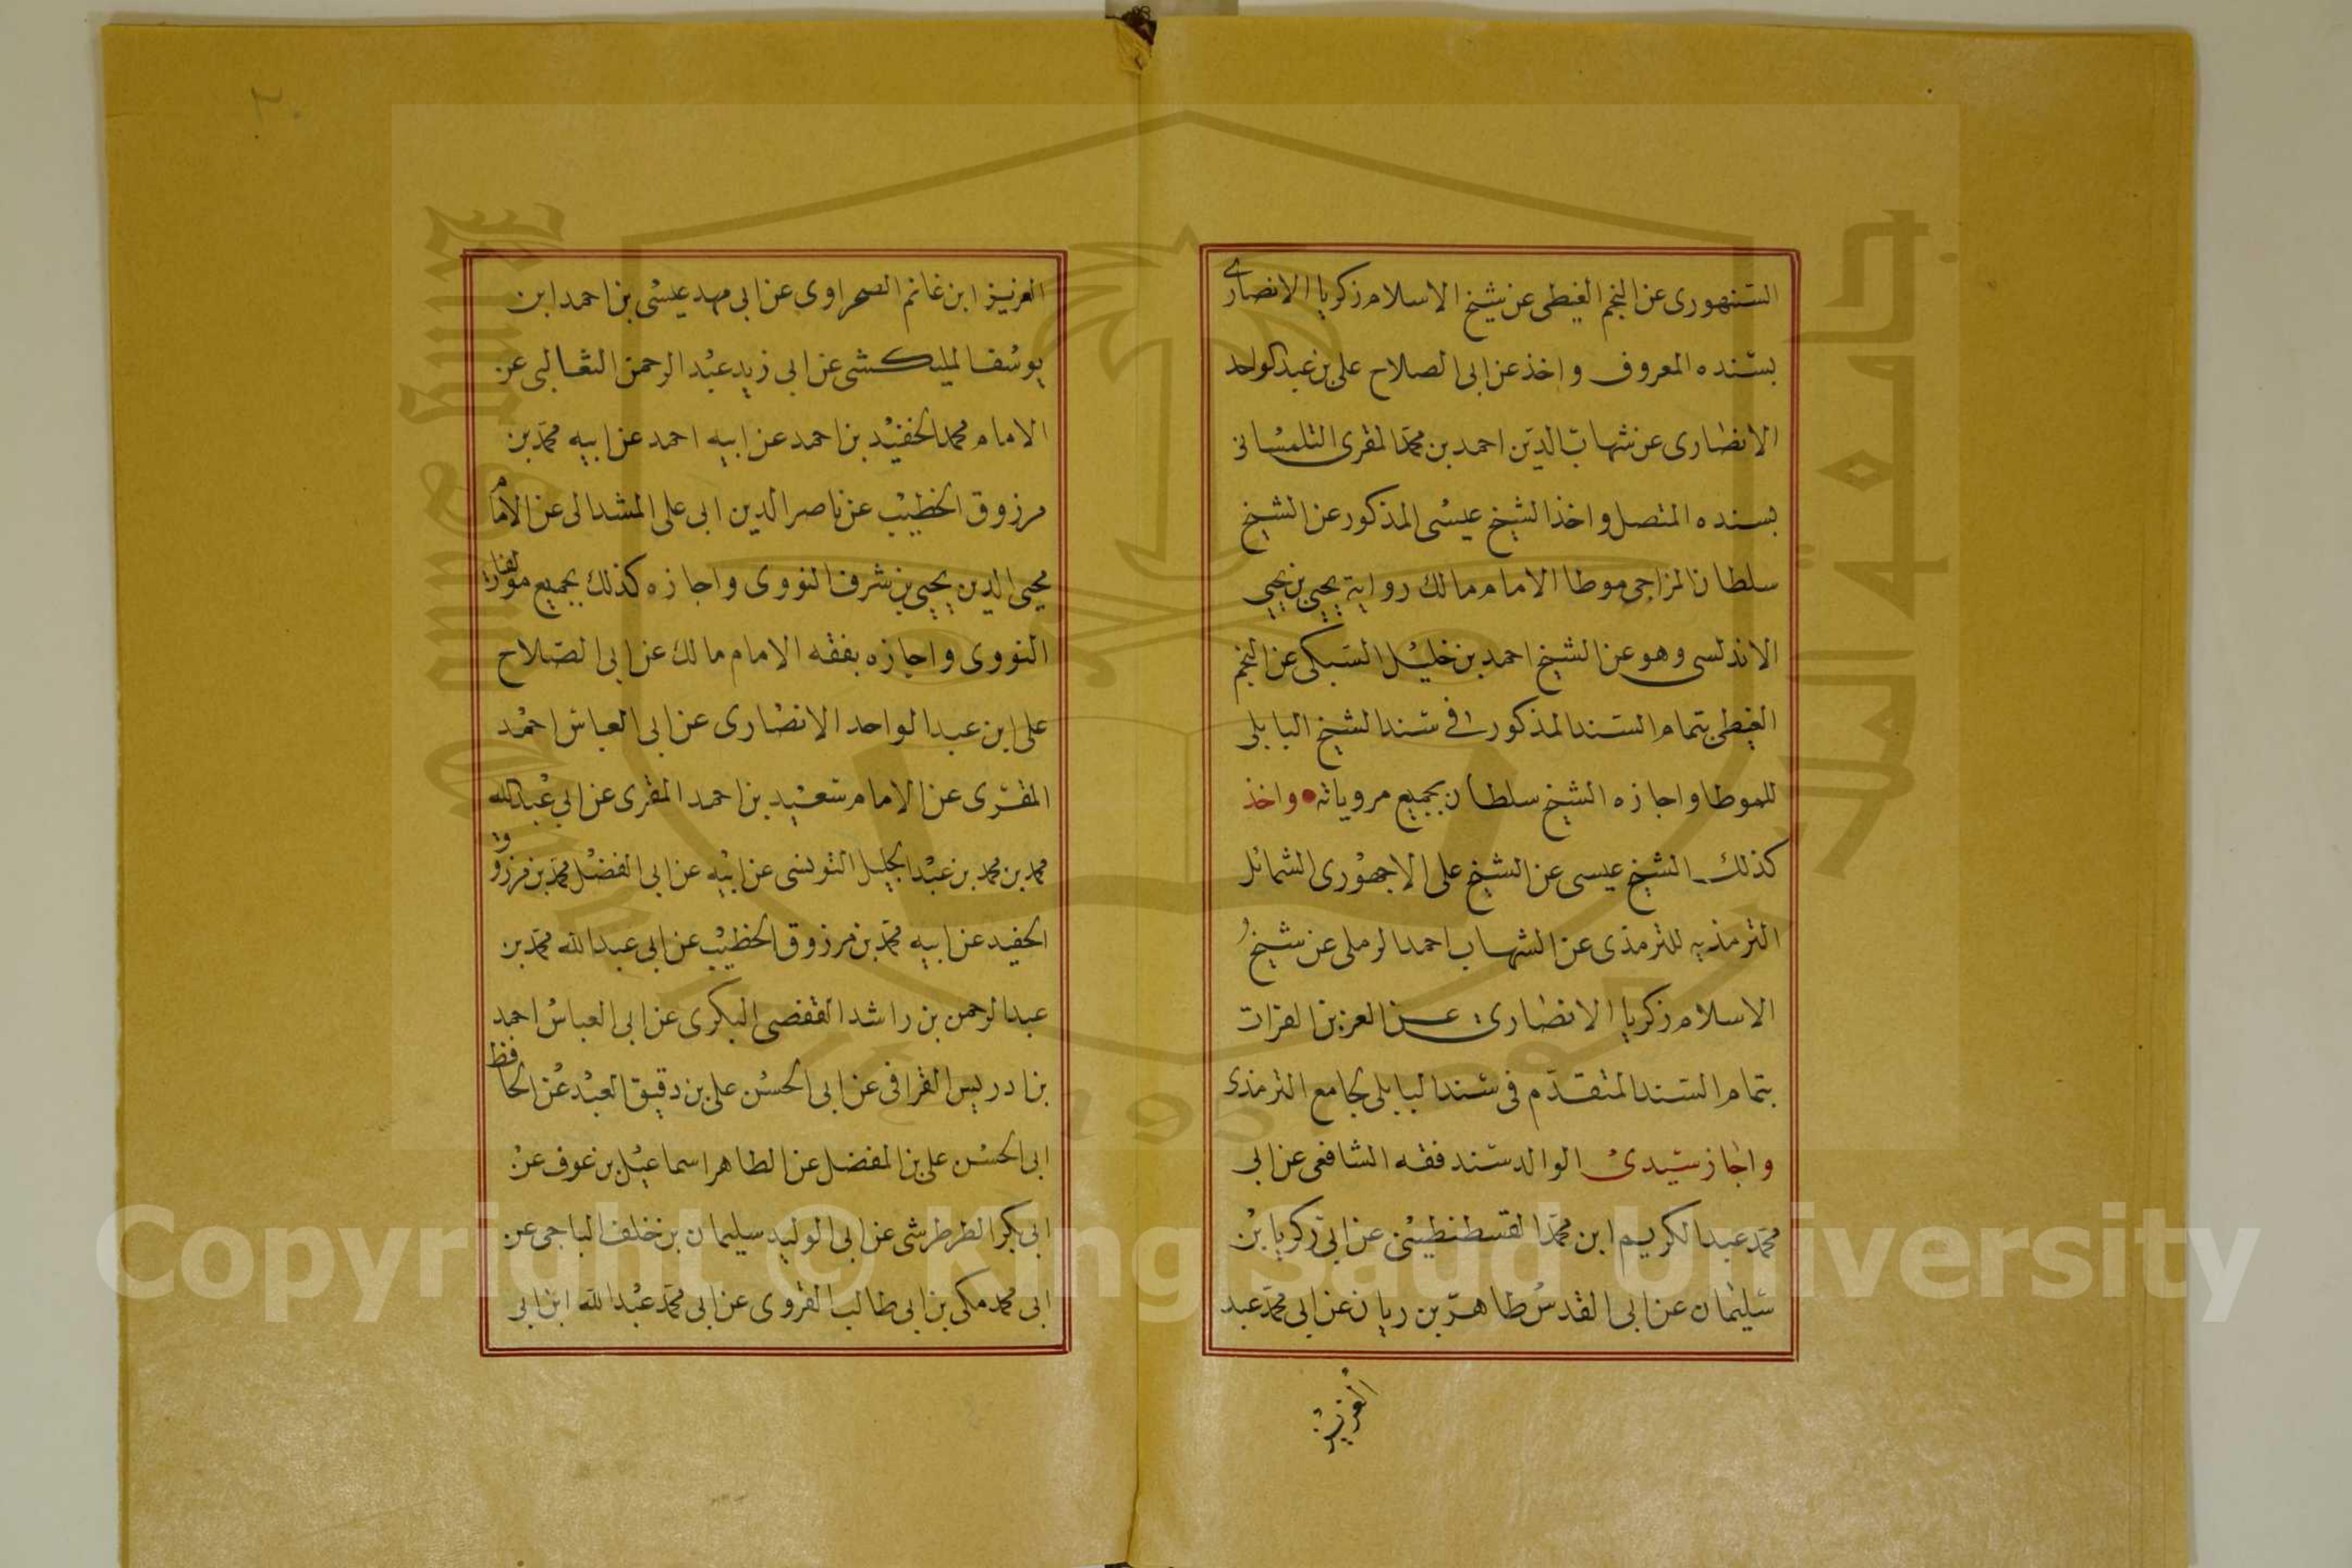 السنهورى عن النجم الغيطى عن شيخ الاسلام زكريا الانصارى
بسنده المعروف واخذ عن ابى الصلاح على بن عبد الواحد
الانصارى عن شهاب الدين احمد بن محمد المقرى التلمسانى
بسنده المتصل واخذ الشيخ عيسى المذكور عن الشيخ
سلطان المزاحى موطا الامام مالك رواية يحيى بن يحيى
الاندلسى وهو عن الشيخ احمد بن خليل السبكى عن النجم
الغيطى بتمام السند المذكور فى سند الشيخ البابلى
للموطا واجازه الشيخ سلطان بجميع مروياته واخذ
كذلك الشيخ عيسى عن الشيخ على الاجهورى الشمائل
الترمذيه للترمذى عن الشهاب احمد الرملى عن شيخ
الاسلام زكريا الانصارى عن العز بن الفرات
بتمام السند المتقدم فى سند البابلى لجامع الترمذى
واجاز سيدى الوالد سند فقه الشافعى عن ابى
محمد عبد الكريم ابن محمد القسطنطينى عن ابى زكريا بن
سليمان عن ابى القدس طاهر بن ريان عن ابى محمد عبد
العزيز
العزيز ابن غانم الصحراوى عن ابى مهد عيسى بن احمد ابن
يوسف المليكشى عن ابى زيد عبد الرحمن الثعالبى عن
الامام محمد الحفيد بن احمد عن ابيه احمد عن ابيه محمد بن
مرزوق الخطيب عن ناصر الدين ابى على المشدالى عن الامام
محيى الدين يحيى بن شرف النووى واجازه كذلك بجميع مولفات
النووى واجازه بفقه الامام مالك عن ابى الصلاح
على ابن عبد الواحد الانصارى عن ابى العباس احمد
المقرى عن الامام سعيد بن احمد المقرى عن ابى عبد الله
محمد بن محمد بن عبد الجليل التونسى عن ابيه عن ابى الفضل محمد بن مرزوق
الحفيد عن ابيه محمد بن مرزوق الخطيب عن ابى عبد الله محمد بن
عبد الرحمن بن راشد القفصى البكرى عن ابى العباس احمد
بن ادريس القرافى عن ابى الحسن على بن دقيق العبد عن الحافظ
ابى الحسن على بن المفضل عن الطاهر اسماعيل بن عوف عن
ابى بكر الطرطرشى عن ابى الوليد سليمان بن خلف الباجى عن
ابى محمد مكى بن ابى طالب القروى عن ابى محمد عبد الله ابن ابى
Copyright © King Saud University